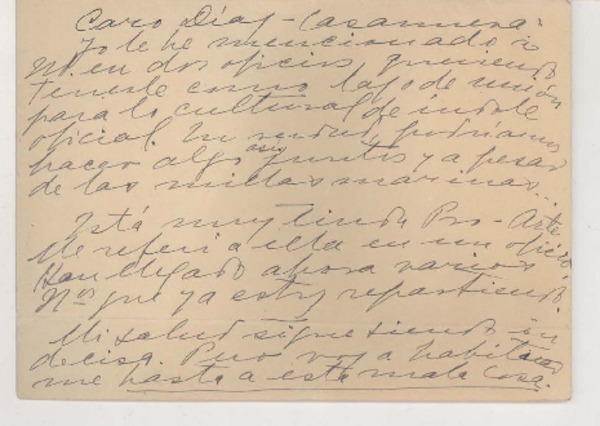 Caro Díaz-Casanueva:
Yo le he mencionado a
Ud. en dos oficios, queriendo
tenerle como lazo de unión
para lo cultural de índole
oficial. En verdad, podríamos
hacer algo así juntos y a pesar
de las millas marinas...
Está muy linda Pro-Arte
Me referí a ella en un oficio.
Han llegado ahora varios
Nos que ya estoy repartiendo.
Mi salud sigue siendo in
decisa. Pero voy a habituar
me hasta a esta mala cosa.